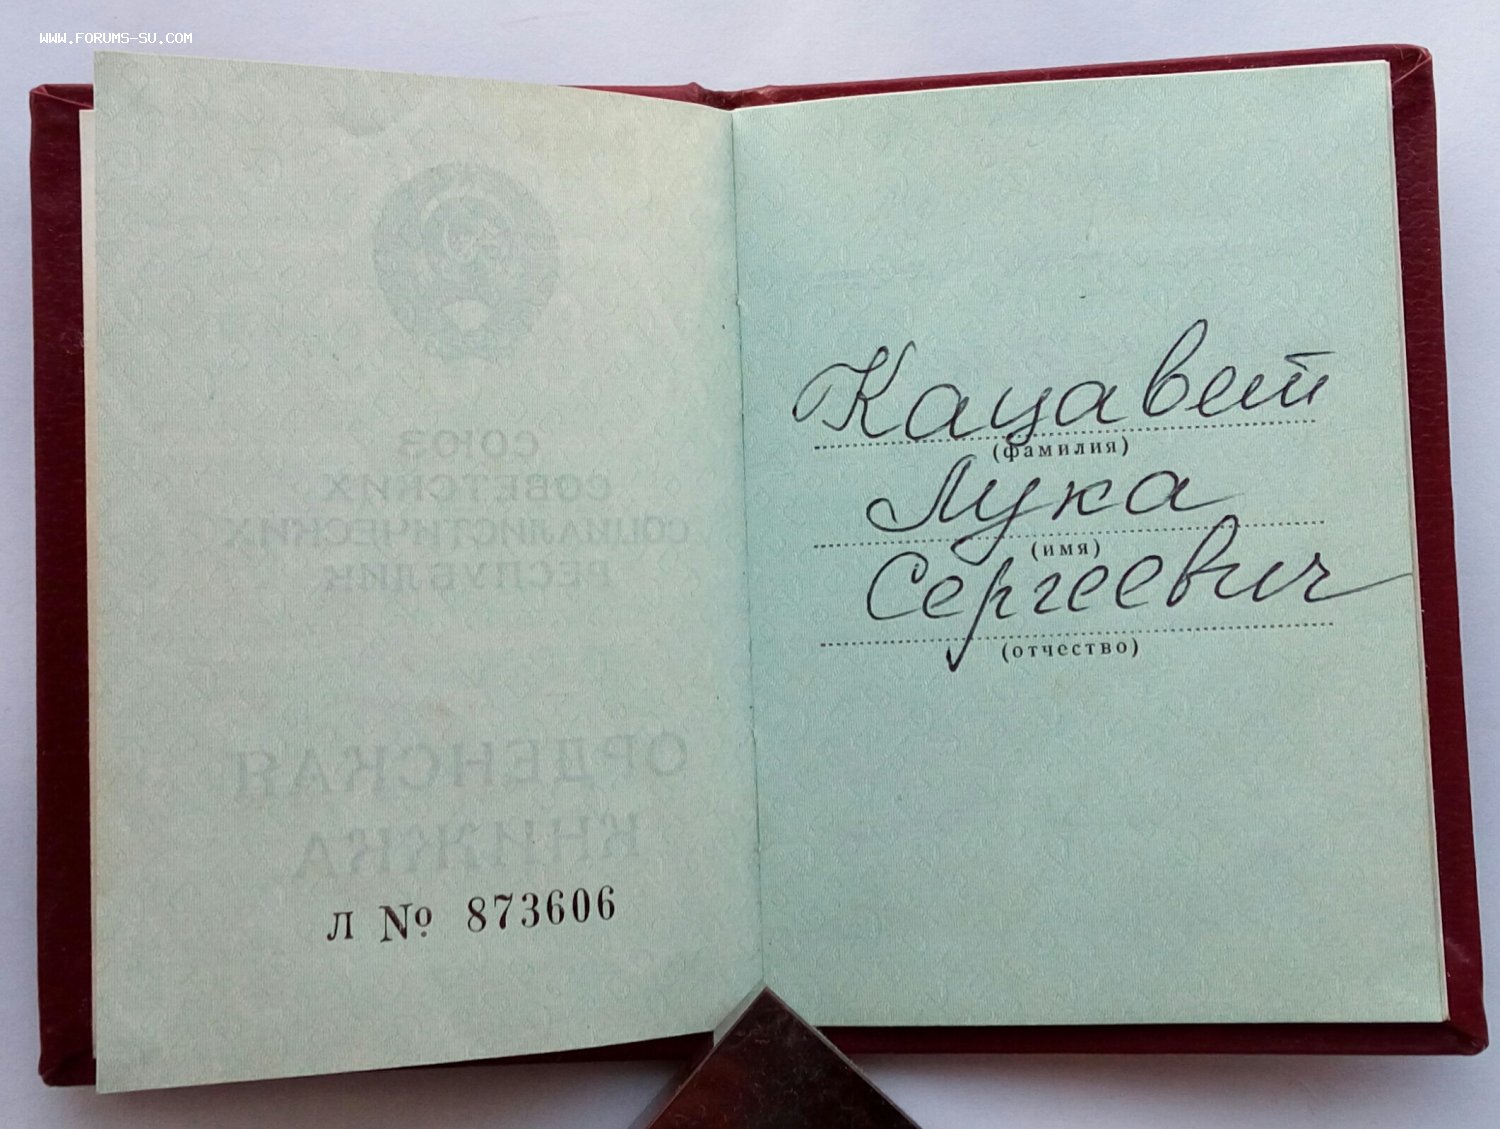 WWW.FORUMS-SU.COM
СОЮЗ
СОВЕТСКИХ
СОЦИАЛИСТИЧЕСКИХ
РЕСПУБЛИК
ОРДЕНСКАЯ
КНИЖКА
Л № 873606
Кацавет
(фамилия)
Лука
(имя)
Сергеевич
(отчество)